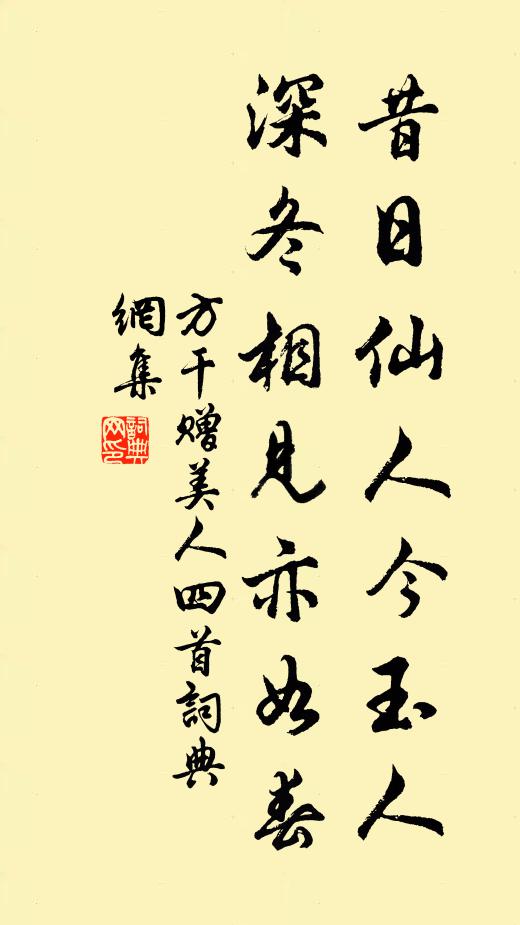 昔日仙人今玉人
深冬相見亦如春
方干赠美人四首詞典
網集
詞典
网印